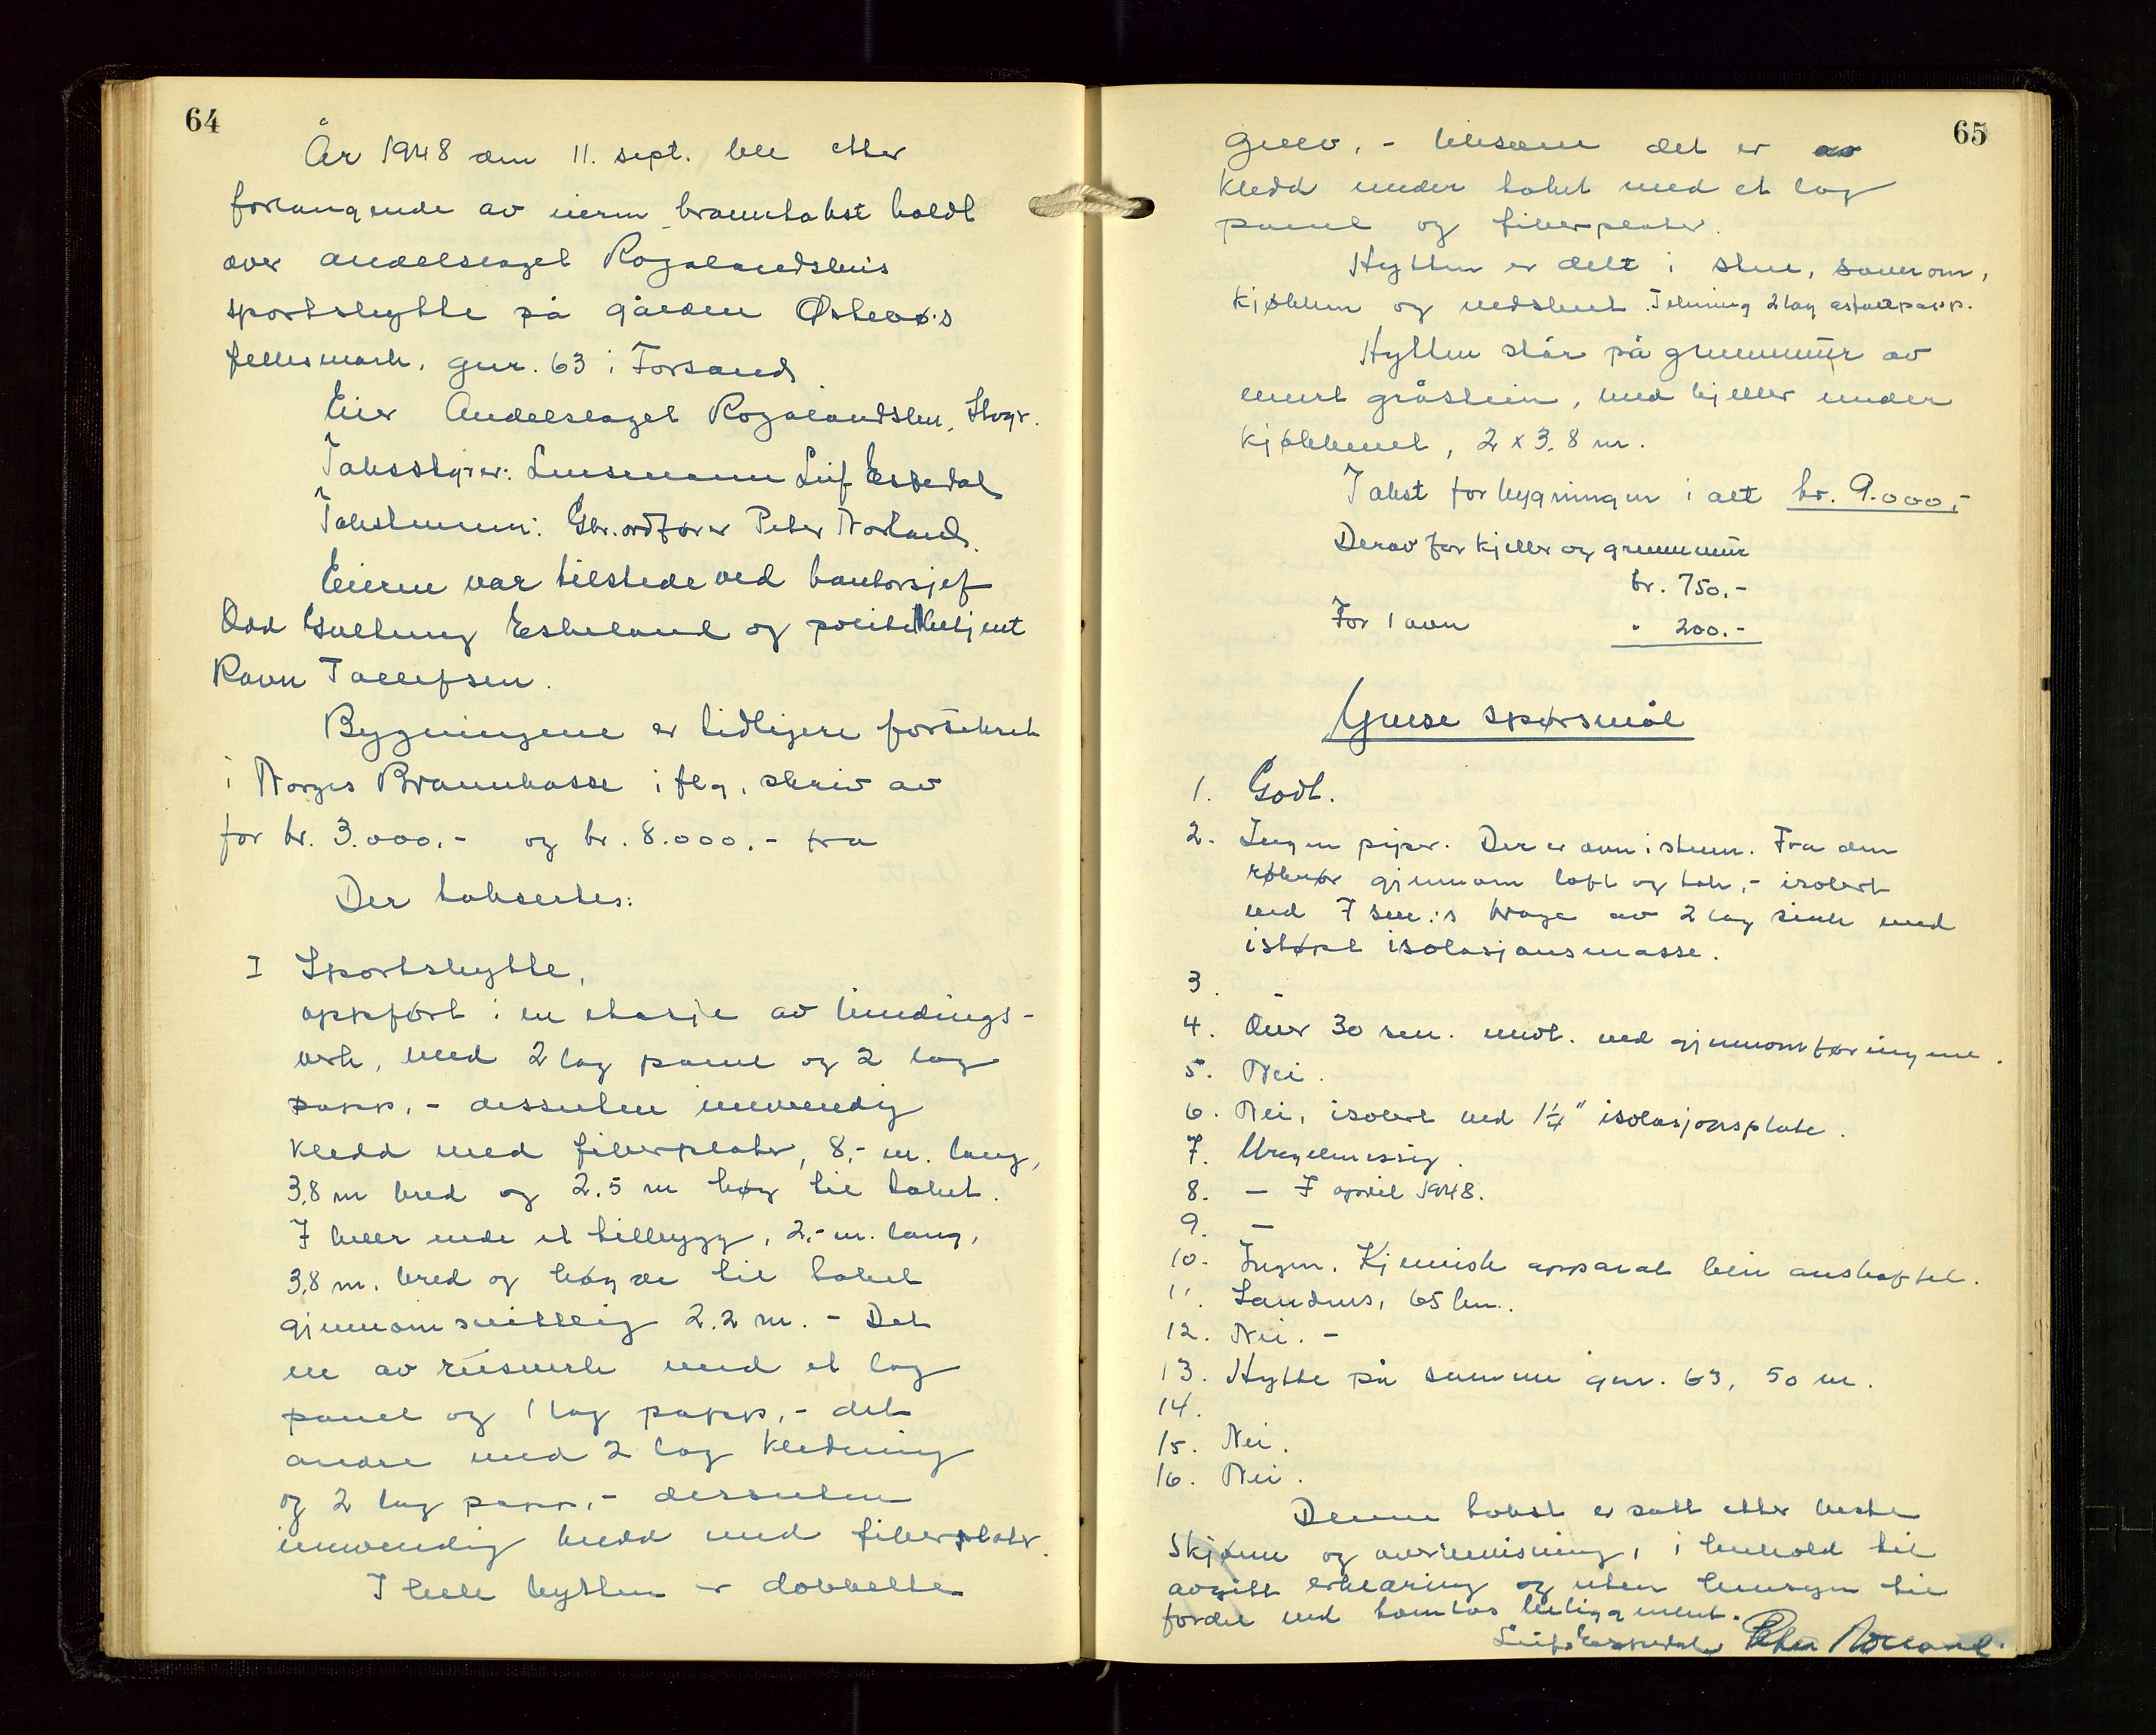 64
År 1948 den 11. sept. ble etter
forlangende av eieren branntakst holdt
over andelslaget Rogalandsheis
sportshytte på gården Østebø's
fellesmark, gnr. 63 i Forsand
Eier Andelslaget Rogalandshei, Stvgr.
Takststyrer: Lensmann Leif Espedal
Takstmenn: Gbr. ordfører Peter Norland.
Eieren var tilstede ved kontorsjef
Odd Gullung Eskeland og politibetjent
Ravn Tollefsen.
Bygningene er tidligere forsikret
i Norges Brannkasse iflg. skriv av
for kr. 3.000.- og kr. 8.000.- fra
Der taksertes:
I Sportshytte,
oppført i en etasje av bindings-
verk, med 2 lag panel og 2 lag
papp, - dessuten innvendig
kledd med fiberplater, 8,- m. lang,
3,8 m bred og 2.5 m høg til taket.
I hver ende et tilbygg, 2,- m. lang,
3,8 m. bred og høgde til taket
gjennomsnittlig 2.2 m. - Det
ene av reisverk med et lag
panel og 1 lag papp, - det
andre med 2 lag kledning
og 2 lag papp, - dessuten
innvendig kledd med fiberplater.
I hele hytten er dobbelte
65
golv, - likesom det er
kledd under taket med et lag
panel og fiberplater.
Hytten er delt i stue, soverom,
kjøkken og vedskut. Tekning 2 lag asfaltpapp.
Hytten står på grunnmur av
muret gråstein, med kjeller under
kjøkkenet, 2 x 3,8 m.
Takst for bygningen i alt kr. 9.000,-
Derav for kjeller og grunnmur
kr. 750.-
For 1 ovn " 200.-
Ymse spørsmål
1. Godt.
2. Ingen piper. Der er ovn i stuen. Fra den
røkrør gjennom loft og tak, - isolert
med 7 sm:s krage av 2 lag sink med
istøpt isolasjonsmasse.
3. -
4. Over 30 sm. unnt. ved gjennomføringene.
5. Nei.
6. Nei, isolert ved 1¼" isolasjonsplate.
7. Uregelmessig.
8. - 7 april 1948.
9. -
10. Ingen. Kjemisk apparat blir anskaffet.
11. Sandnes, 65 km.
12. Nei. -
13. Hytte på samme gnr. 63, 50 m.
14.
15. Nei.
16. Nei.
Denne takst er satt etter beste
skjønn og overbevisning, i henhold til
avgitt erklæring og uten hensyn til
fordel ved tomtas beliggenhet.
Leif Espedal Peter Norland.